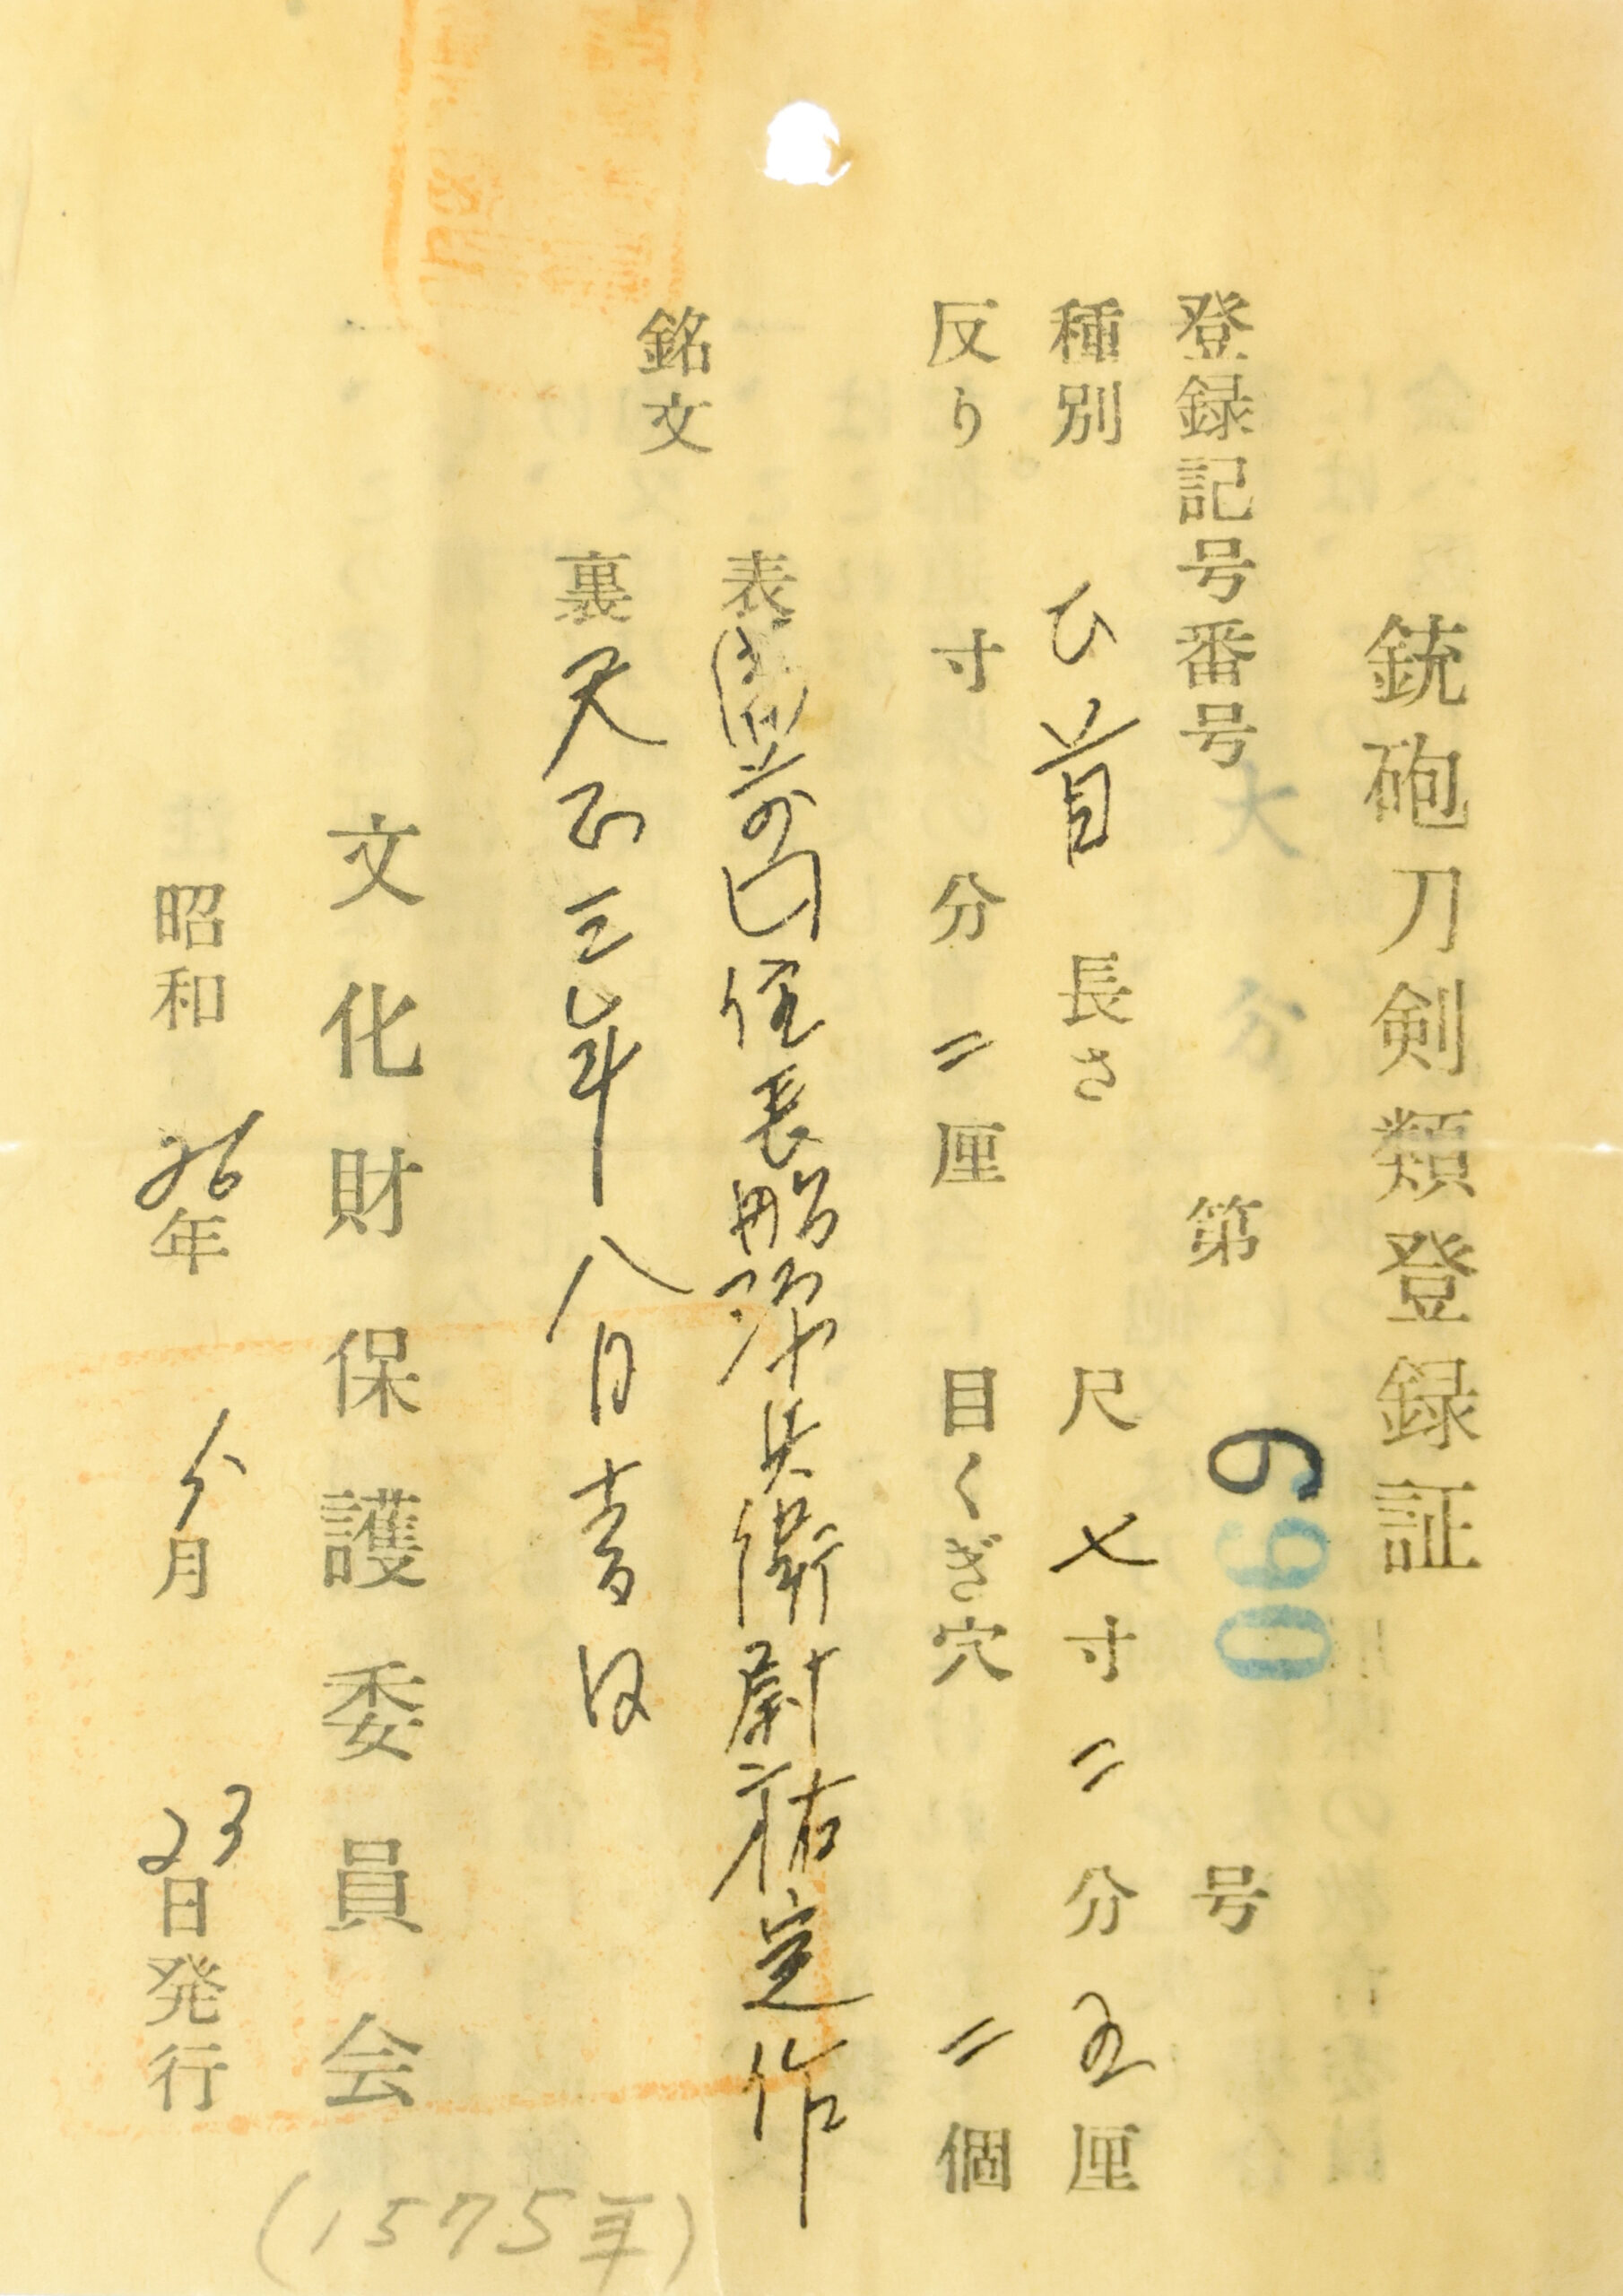 銃砲刀剣類登録証
登録記号番号 大分 第 690 号
種別 ひ首 長さ 尺 七寸 二分 五厘
反り 寸 分 二厘 目くぎ穴 二個
銘文
表 備前国住長船 兵衛尉祐定作
裏 天正三年八月吉日
文化財保護委員会
昭和 26年 月 23日発行
(1575年)